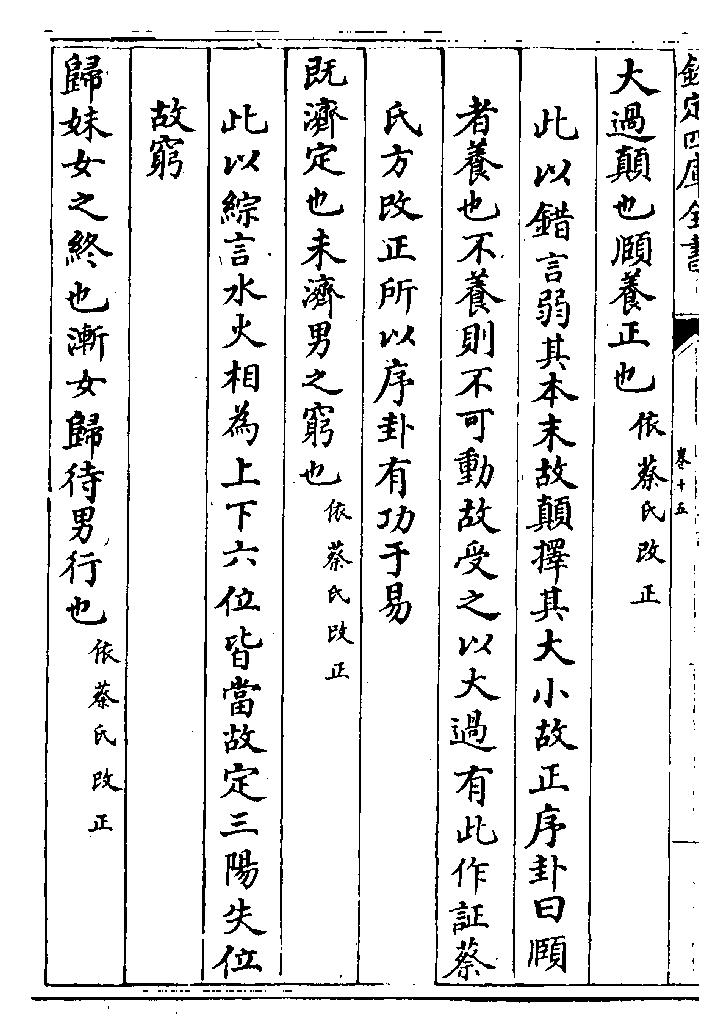 欽定四庫全書
卷十五
大過顛也頤養正也依蔡氏改正
此以錯言弱其本末故顛擇其大小故正序卦曰頤
者養也不養則不可動故受之以大過有此作証蔡
氏方改正所以序卦有功于易
既濟定也未濟男之窮也依蔡氏改正
此以綜言水火相為上下六位皆當故定三陽失位
故窮
歸妹女之終也漸女歸待男行也依蔡氏改正